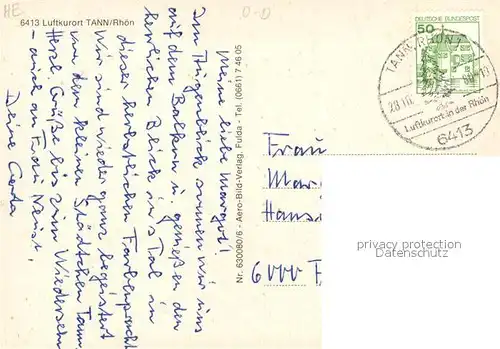 HE
0-0
6413 Luftkurort TANN/Rhön
Meine liebe Margot!
Im Augenblick sonnen wir uns
auf dem Balkon u. genießen den
herrlichen Blick in's Tal in
dieser herbstlichen Farbenpracht.
Wir sind wieder ganz begeistert
von dem kleinen Städtchen Tann.
Herzl. Grüße bis zum Wiedersehn
- auch an Frau
Deine
Nr. 630080/6 - Aero-Bild-Verlag, Fulda - Tel. (0661) 7 46 05
DEUTSCHE BUNDESPOST
50
TANN, RHÖN 1
Luftkurort in der Rhön
6413
Frau
Mar
Hans
6000 F
privacy protection
Datenschutz